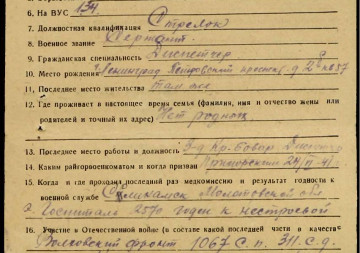 6. На ВУС 134
7. Должностная квалификация Стрелок
8. Военное звание Сержант
9. Гражданская специальность Диспетчер
10. Место рождения г. Ленинград Петровский
11. Последнее место жительства Там же
12. Где проживает в настоящее время семья (фамилия, имя и отчество жены или
родителей и точный их адрес) Нет родных
13. Последнее место работы и должность з-д Кр.
14. Каким райгорвоенкоматом и когда призван Приморским 41 г.
15. Когда и где проходил последний раз медкомиссию и результат годности к
военной службе Соликамск Молотовской обл
Госпиталь 2570 годен к нестроевой
16. Участие в Отечественной войне (в составе какой последней части в качестве
Волховский фронт 1067 С.п. 311. с.д.